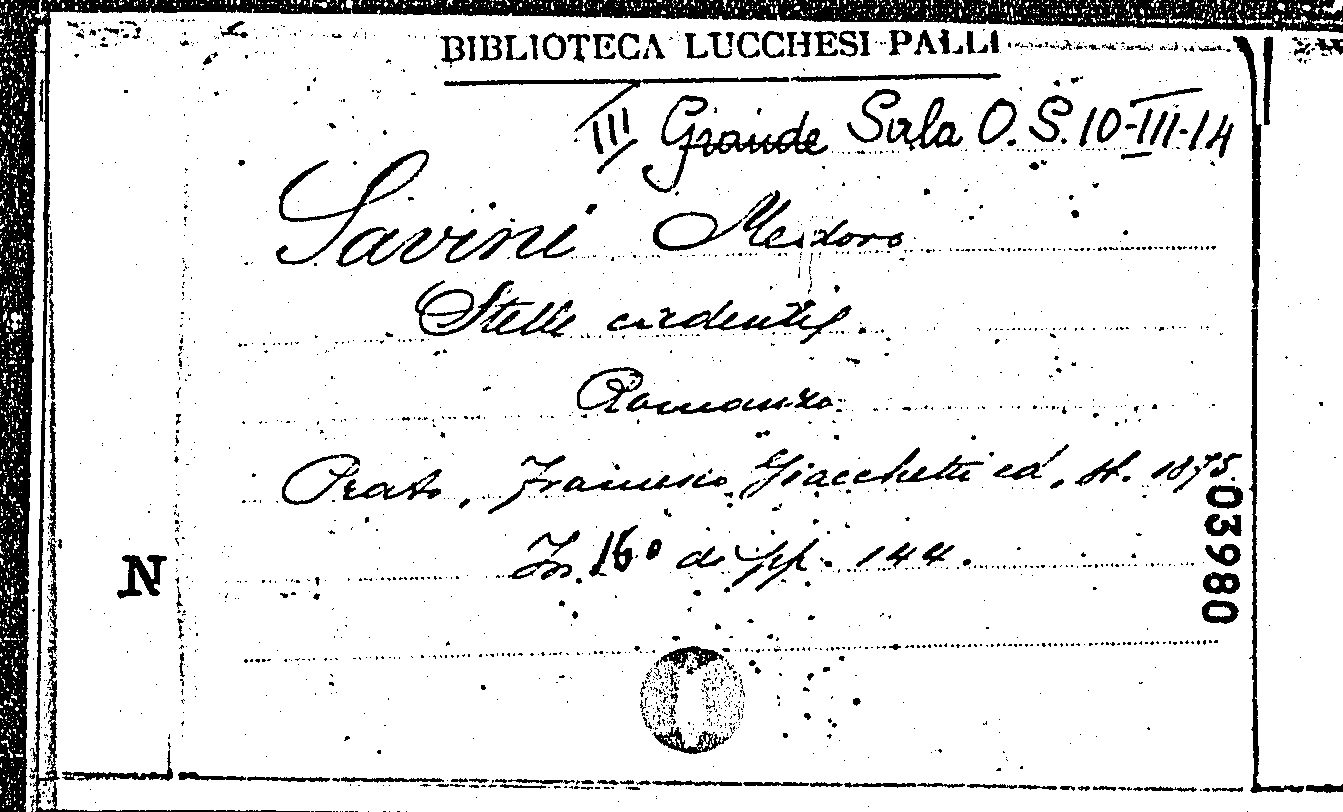 BIBLIOTECA LUCCHESI-PALLI
III Grande Sala O. S. 10-III-14
Savini Medoro
Stelle cadenti.
Romanzo
Prato, Francesco Giacchetti ed. st. 1875.
In 16° di pp. 144.
N
03980